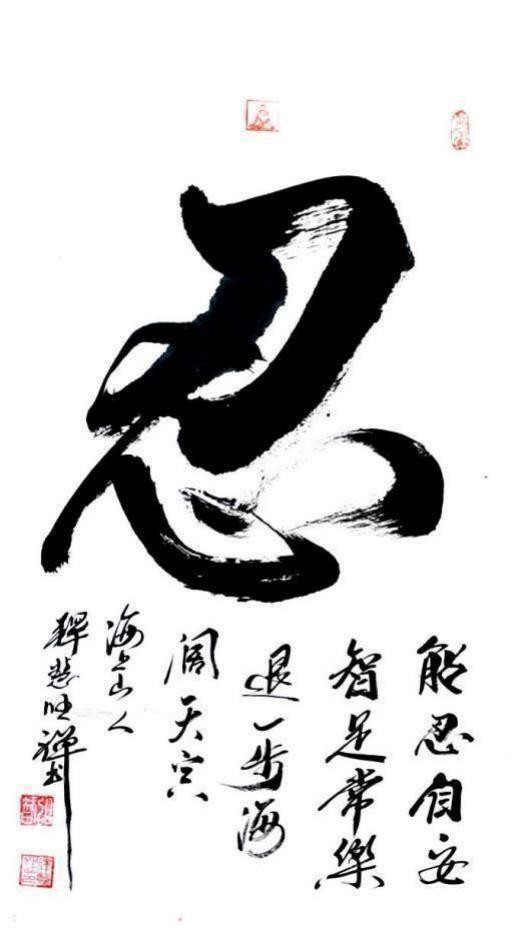 忍
能忍自安
智足常樂
退一步海
阔天空
海上山人
釋慧旺禪书